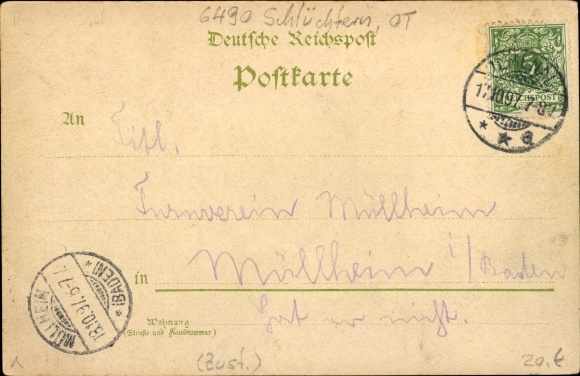 6490 Schlüchtern, OT
Deutsche Reichspost
Postkarte
REICHSPOST
17.10.97. 7-8
An Titl.
Turnverein Müllheim
in Müllheim i/Baden
Gut er nicht.
Wohnung
(Straße und Hausnummer)
MÜLLHEIM (BADEN)
18.10.97. 6-7
(Zust.)
20.€
1